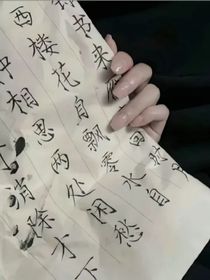 书来回时
西楼花自飘零水自
相思两处闲愁
消除才下